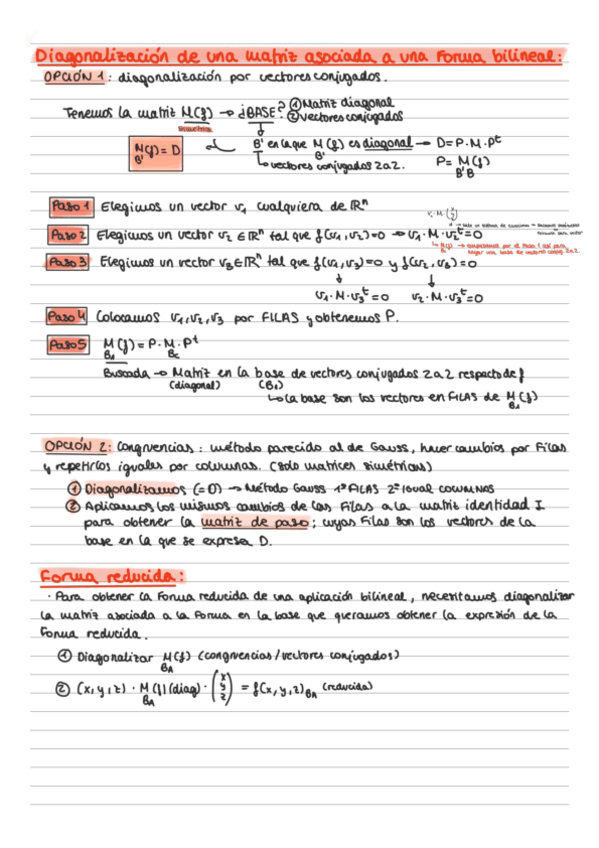 Diagonalización de una matriz asociada a una Forma bilineal:
OPCIÓN 1: diagonalización por vectores conjugados.
Tenemos la matriz M(f) → ¿BASE? ① Matriz diagonal
② vectores conjugados
simétrica
M(f) = D
B'
B' en la que M(f) es diagonal → D = P·M·Pᵗ
B'
vectores conjugados 2 a 2.
P = M(f)
B'B
Paso 1 Elegimos un vector v₁ cualquiera de ℝⁿ
Paso 2 Elegimos un vector v₂ ∈ ℝⁿ tal que f(v₁,v₂)=0 → v₁·M·v₂ᵗ=0
Paso 3 Elegimos un vector v₃ ∈ ℝⁿ tal que f(v₁,v₃)=0 y f(v₂,v₃)=0
v₁·M·v₃ᵗ=0 v₂·M·v₃ᵗ=0
Paso 4 Colocamos v₁,v₂,v₃ por FILAS y obtenemos P.
Paso 5 M(f) = P·M·Pᵗ
B₁ Bc
Buscada → Matriz en la base de vectores conjugados 2 a 2 respecto de f
(diagonal) (B₁)
↳ la base son los vectores en FILAS de M(f)
B₁
OPCIÓN 2: Congruencias: método parecido al de Gauss, hacer cambios por Filas
y repetirlos iguales por columnas. (solo matrices simétricas)
① Diagonalizamos (=D) → Método Gauss 1º FILAS 2º igual COLUMNAS
② Aplicamos los mismos cambios de las Filas a la matriz identidad I
para obtener la matriz de paso; cuyas Filas son los vectores de la
base en la que se expresa D.
Forma reducida:
· Para obtener la Forma reducida de una aplicación bilineal, necesitamos diagonalizar
la matriz asociada a la Forma en la base que queramos obtener la expresión de la
Forma reducida.
① Diagonalizar M(f) (congruencias/vectores conjugados)
BA
② (x,y,z) · M(f)(diag) · (x y z) = f(x,y,z)BA (reducida)
BA